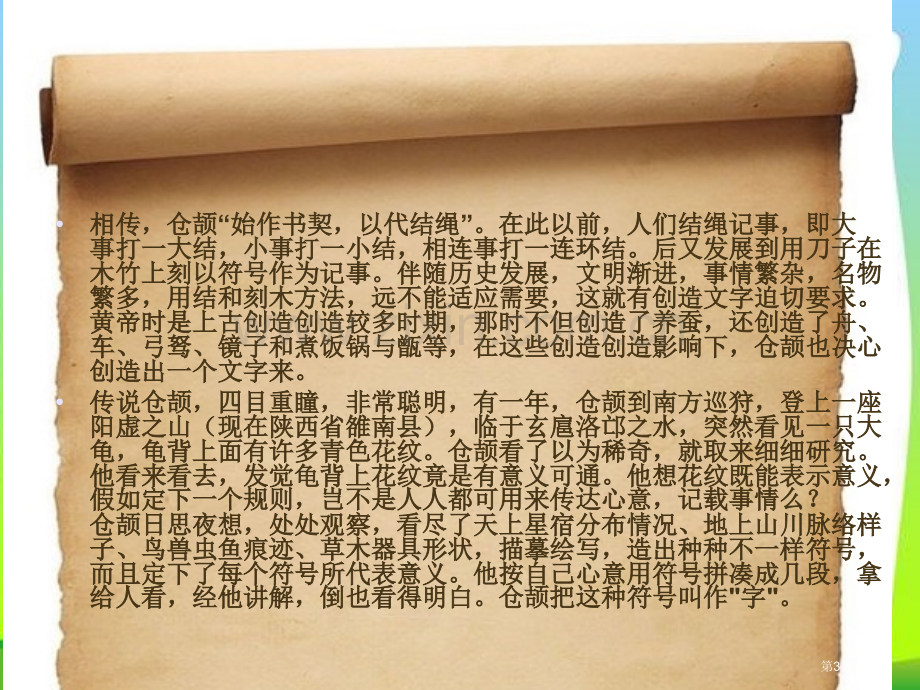 相传，仓颉“始作书契，以代结绳”。在此以前，人们结绳记事，即大
事打一大结，小事打一小结，相连事打一连环结。后又发展到用刀子在
木竹上刻以符号作为记事。伴随历史发展，文明渐进，事情繁杂，名物
繁多，用结和刻木方法，远不能适应需要，这就有创造文字迫切要求。
黄帝时是上古创造创造较多时期，那时不但创造了养蚕，还创造了舟、
车、弓驽、镜子和煮饭锅与甑等，在这些创造创造影响下，仓颉也决心
创造出一个文字来。
传说仓颉，四目重瞳，非常聪明，有一年，仓颉到南方巡狩，登上一座
阳虚之山（现在陕西省雒南县），临于玄扈洛邙之水，突然看见一只大
龟，龟背上面有许多青色花纹。仓颉看了以为稀奇，就取来细细研究。
他看来看去，发觉龟背上花纹竟是有意义可通。他想花纹既能表示意义，
假如定下一个规则，岂不是人人都可用来传达心意，记载事情么？
仓颉日思夜想，处处观察，看尽了天上星宿分布情况、地上山川脉络样
子、鸟兽虫鱼痕迹、草木器具形状，描摹绘写，造出种种不一样符号，
而且定下了每个符号所代表意义。他按自己心意用符号拼凑成几段，拿
给人看，经他讲解，倒也看得明白。仓颉把这种符号叫作"字"。
第3